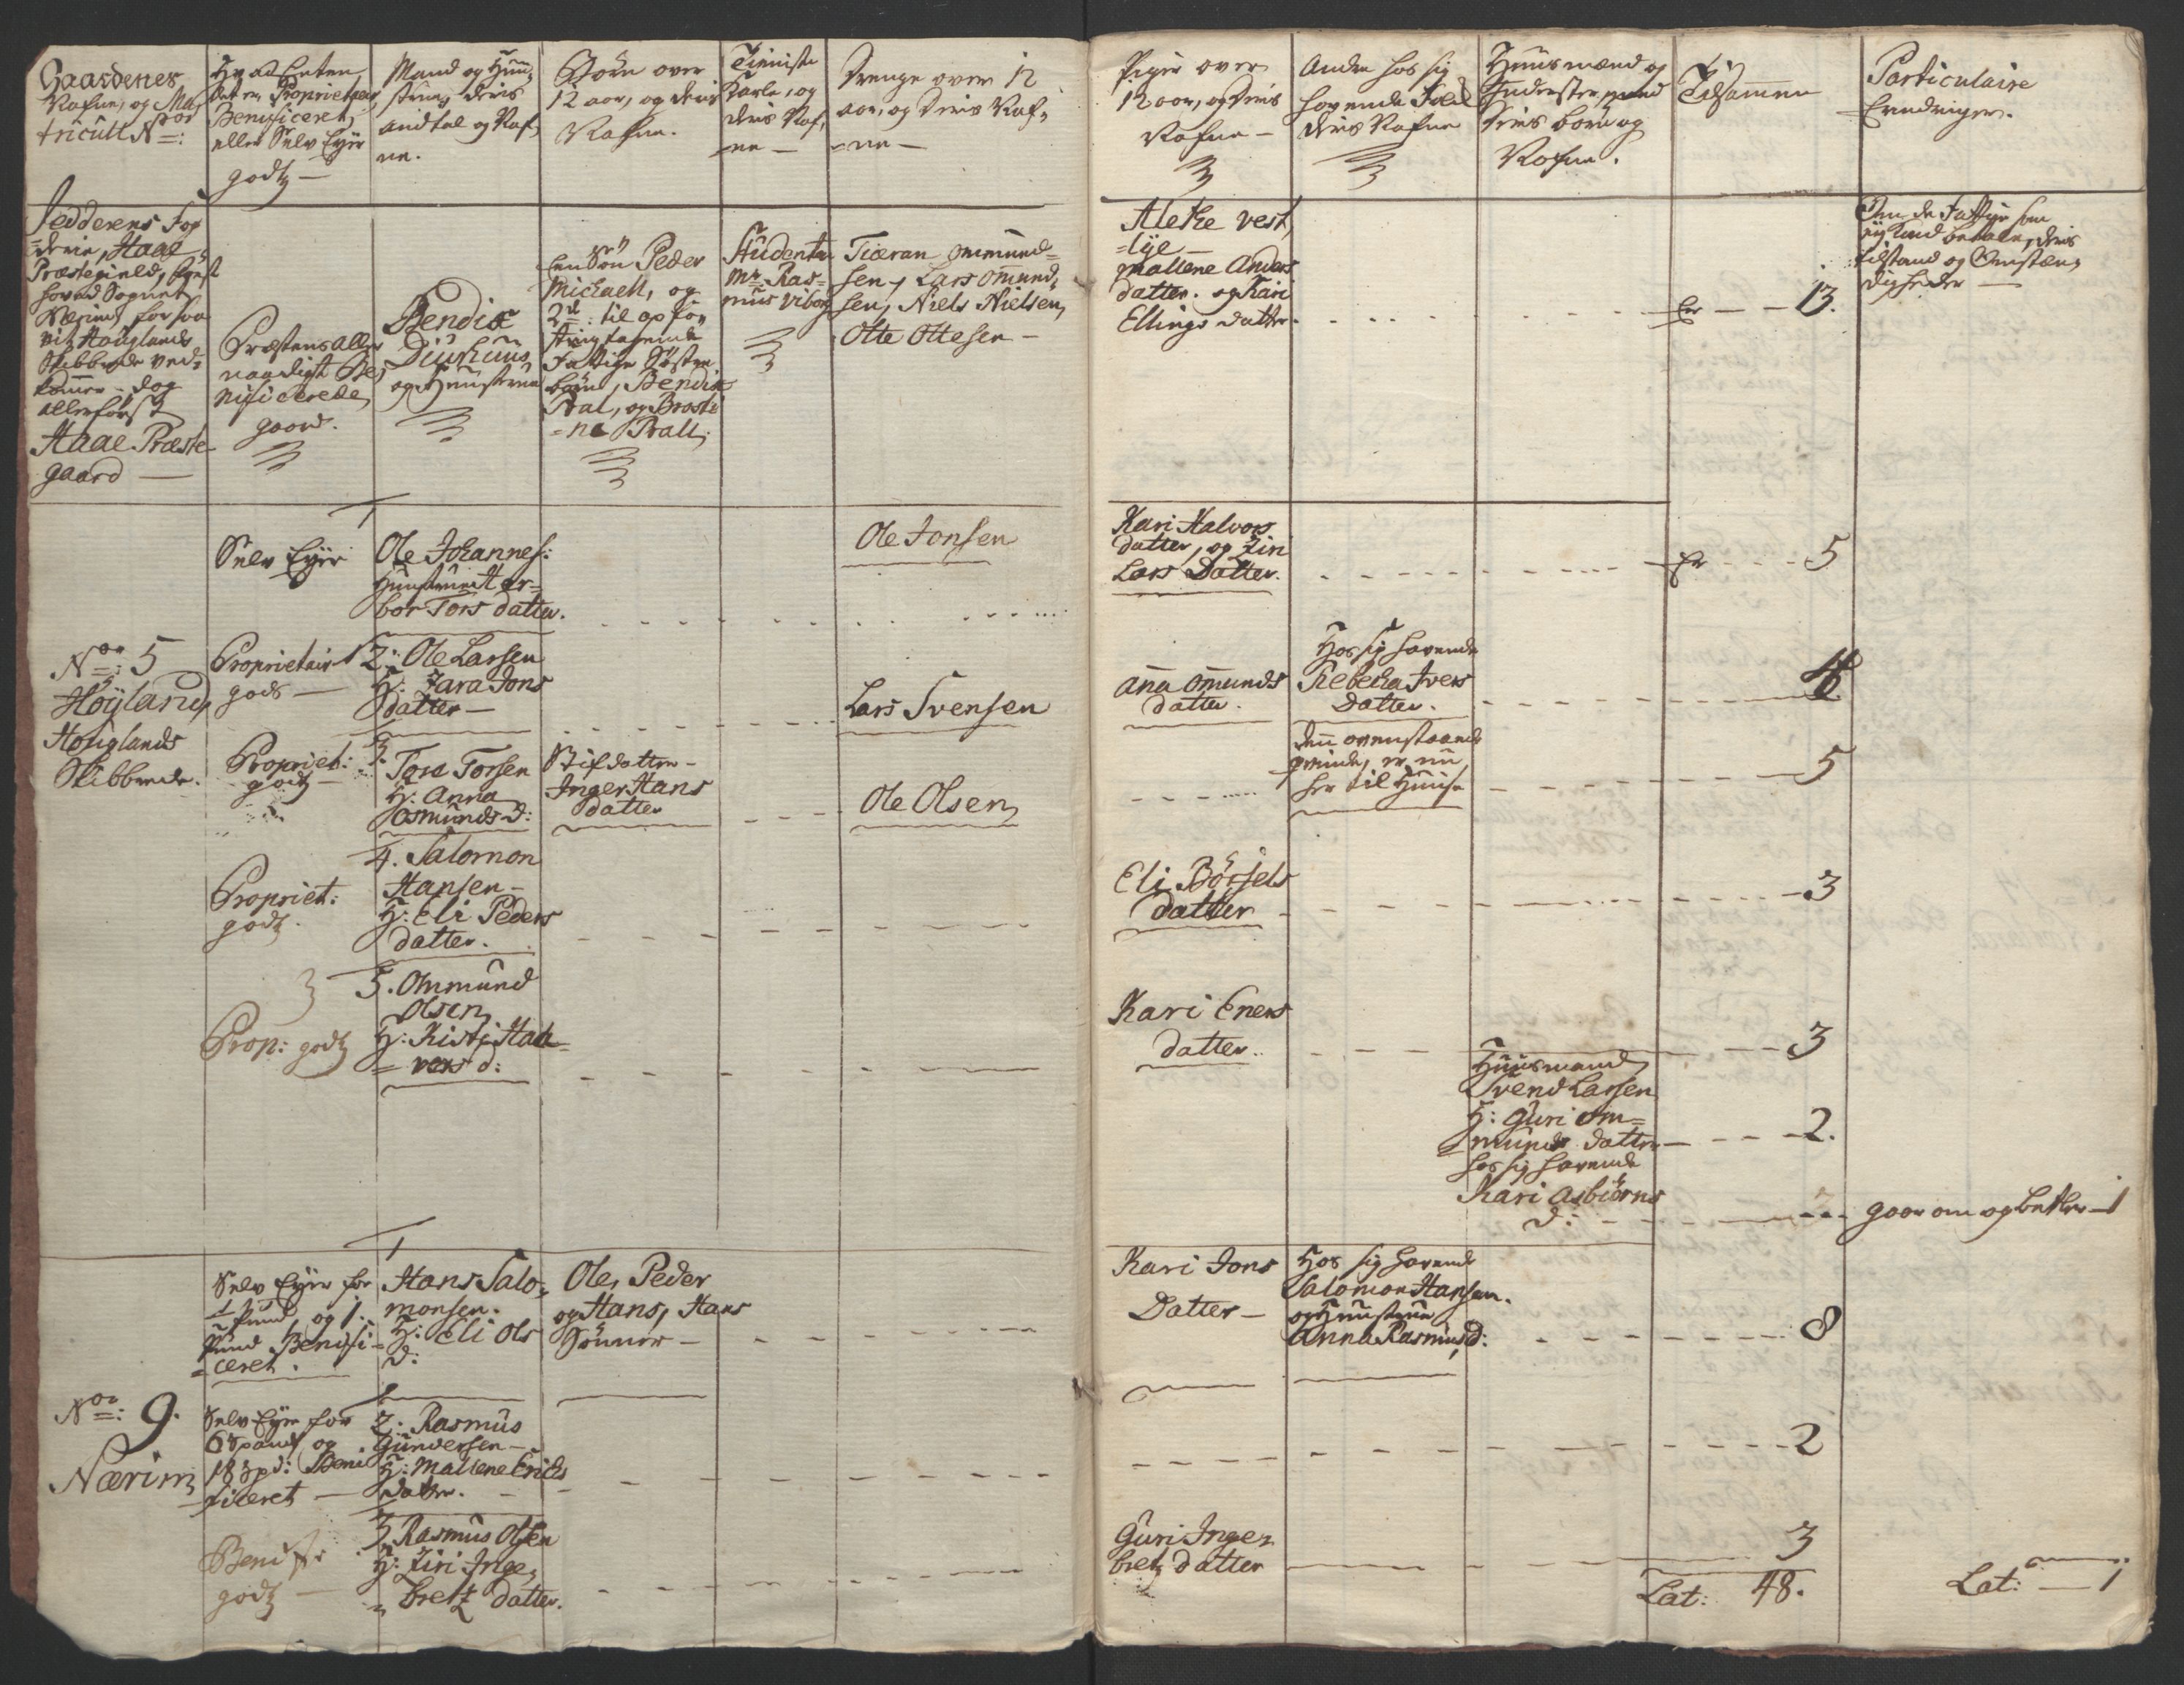 Gaardenes
Nafne, og Ma-
tricull No:
Hvad Enten
det er Proprietair,
Benificeret,
eller Selv Eyer
godtz —
Mand og Huu-
struer, deris
andtal og Naf-
ne.
Børn over
12 aar, og deris
Nafne.
Tieniste
Karle, og
deris Naf-
=ne —
Drenge over 12
aar, og deris Naf-
=ne —
Piger over
12 aar, og deris
Nafne —
Andre hos sig
havende Folck
deris Nafne
Huusmænd og
Inderster, med
deris børn og
Nafne.
Tilsammen
Particulaire
Erindringer.
Jedderens Fog
=derie, Haae
Præstegield, først
hoved Sognet
Nærim, for saa
vit Houglands
Skibbrede ved-
kommer - dog
allerførst
Haae Præste-
gaard —
Præstens aller
naadigst Be-
nificerede
gaard.
Bendix
Diurhuus
og Huustrue
En Søn Peder
Michaell, og
2de til op fo-
string tagende
Fattige Søster
børn, Bendix
Brall, og Brosti
=ne Brall,
Studenten
Mr. Ras-
mus Viborg
Tiæran ommund-
sen, Lars omund-
sen, Niels Nielsen,
Otte Ottesen —
Aletke vest
=lye —
Mallene Anders
datter. og Kari
Ellings datter.
Er — 13.
Om de Fattige som
ey kand betale, deris
tilstand og Omstæn-
digheder —
1
Selv Eyer
Ole Johannes:
Huustrue Ar-
bor Tors datter.
Ole Jonsen
Kari Halvors
datter, og Ziri
Lars Datter.
Er — 5
No: 5
Høyland,
Houglands
Skibbrede.
Proprietair
gods —
2. Ole Larsen
H: Zara Jons
datter —
Lars Svensen
Ana omunds
datter.
Hos sig havende
Rebecka Ivers
Datter.
4
Propriet:
godtz —
3. Tore Torsen
H: Anna
Osmunds d:
Stifdatter —
Inger Hans
datter
Ole Olsen
Den ovenstaaende
qvinde, er nu
her til Huuse
5
Propriet:
godtz.
4. Salomon
Hansen —
H: Eli Peders
datter.
Eli Børsels
datter
3
Prop: godtz
5. Ommund
Olsen
H: Kisti Hal-
=vors d:
Kari Eners
datter.
3
Huusmand
Svend Larsen
H: Guri om=
munds datter — 2.
hos sig havende
Kari Asbiørns
d:
gaar om og betler — 1
1
Selv Eyer for
1/2 pund, og 1.
Pund Benifi-
=ceret.
Hans Salo-
monsen.
H: Eli Ols
d:
Ole, Peder
og Hans, Hans
Sønner —
Kari Jons
Datter —
Hos sig havende
Salomon Hansen.
og Huustrue
Anna Rasmus d:
8
No: 9.
Nærim
Selv Eyer for
6 Spand og
18 spd: Beni
ficeret —
2. Rasmus
Gundersen —
H: Mallene Erichs
datter.
2
Benif:
godtz —
3. Rasmus Olsen
H: Ziri Inge-
bretz datter.
Guri Inge-
bretz datter
3
Lat: 48.
Lat: — 1